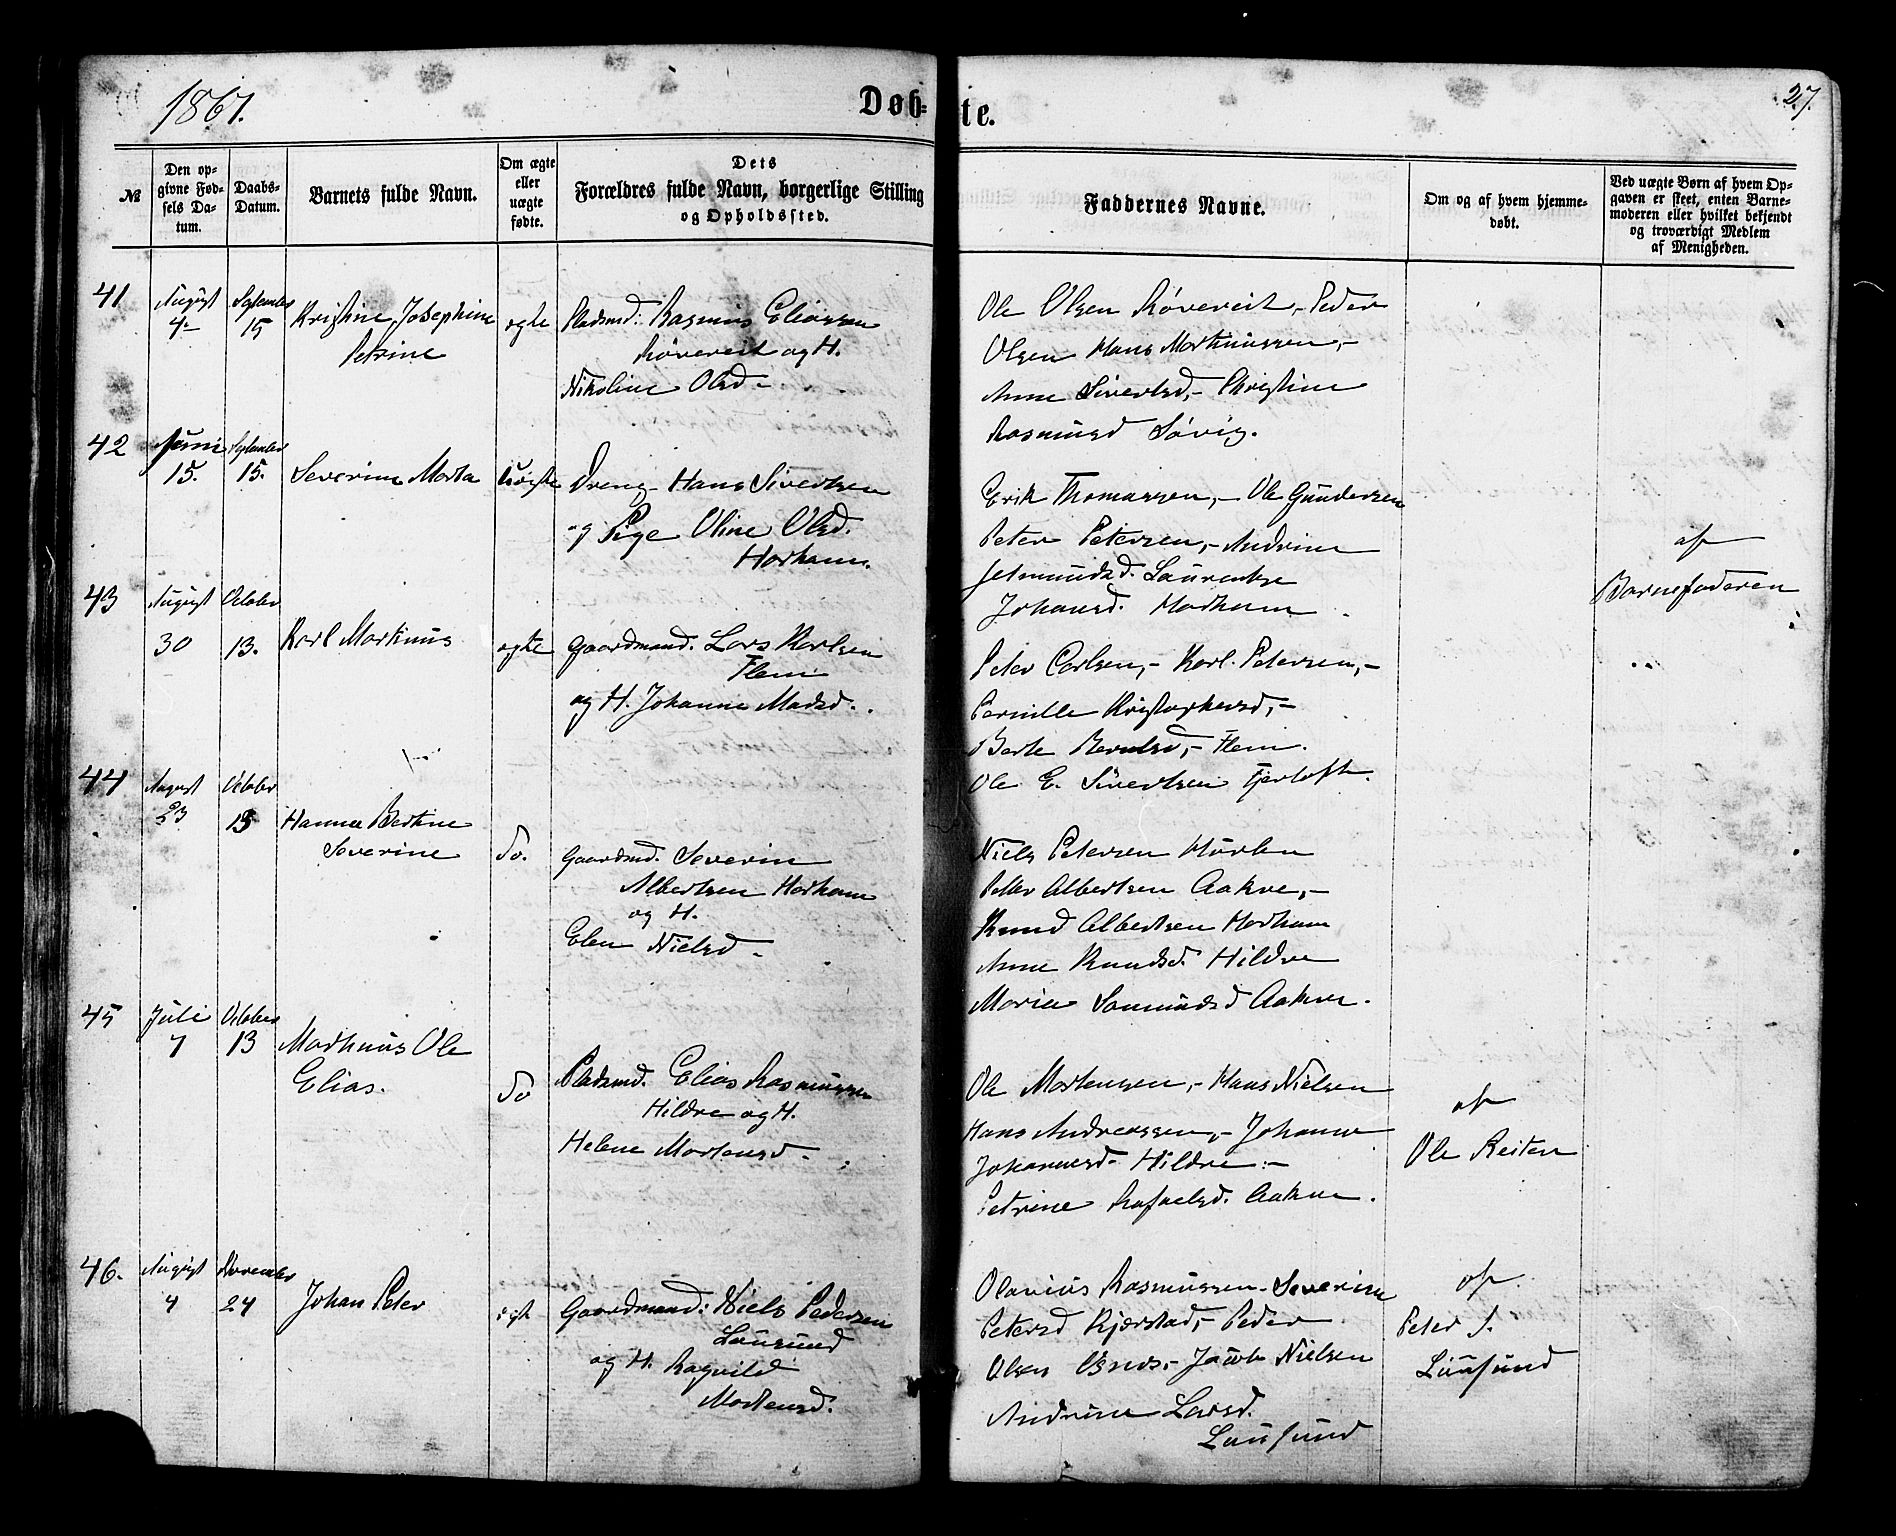 1867.
Døb-
te.
27.
№
Den op-
givne Fød-
sels Da-
tum.
Daabs-
Datum.
Barnets fulde Navn.
Om ægte
eller
uægte
fødte.
Dets
Forældres fulde Navn, borgerlige Stilling
og Opholdssted.
Faddernes Navne.
Om og af hvem hjemme-
døbt.
Ved uægte Børn af hvem Op-
gaven er skeet, enten Barne-
moderen eller hvilket bekjendt
og troværdigt Medlem
af Menigheden.
41
August
4
September
15
Kristine Josephine
Petrine
ægte
Pladsmd: Rasmus Eliassen
Røvereit og H.
Nikoline Olsd -
Ole Olsen Røvereit, - Peder
Olsen Hans Martinussen, -
Anne Sivertsd, - Christine
Rasmusd Søvig.
42
Juni
15.
September
15.
Severine Marta
Uægte
Dreng Hans Sivertsen
og Pige Oline Olsd.
Harham.
Erik Thomassen, - Ole Gundersen
Peter Petersen, - Andrine
Jetmundsd. Laurentse
Johansd. Harham
af
Barnefaderen
43
August
30
October
13.
Karl Martinus
ægte
Gaardmand. Lars Karlsen
Flem
og H. Johanne Madsd.
Peter Carlsen, - Karl Petersen, -
Pernille Kristophersd, -
Berte Berntsd, - Flem.
Ole E. Sivertsen Fjørtoft.
44
August
23
October
13
Hanna Bertine
Severine
do.
Gaardmd. Severin
Albertsen Harham
og H.
Elen Nielsd -
Niels Petersen Hurlen
Peter Albertsen Aakre, -
Knud Albertsen Harham
Anne Knudsd. Hildre
Maria Samundsd Aakre.
45
Juli
7
October
13
Martinus Ole
Elias.
do
Pladsmd. Elias Rasmussen
Hildre og H.
Helene Mortensd -
Ole Mortensen, - Hans Nielsen
Hans Andreassen, - Johanne
Johannesd Hildre -
Petrine Rafaelsd. Aakre.
af
Ole Reiten
46.
August
4
November
24
Johan Peter
ægte
Gaardmand: Niels Pedersen
Lausund
og H. Ragnild
Mortensd.
Olavius Rasmussen - Severine
Petersd Kjærstad, - Peder
Olsen - Jacob Nielsen
Andrine Larsd.
Lausund
af
Peter J.
Lausund